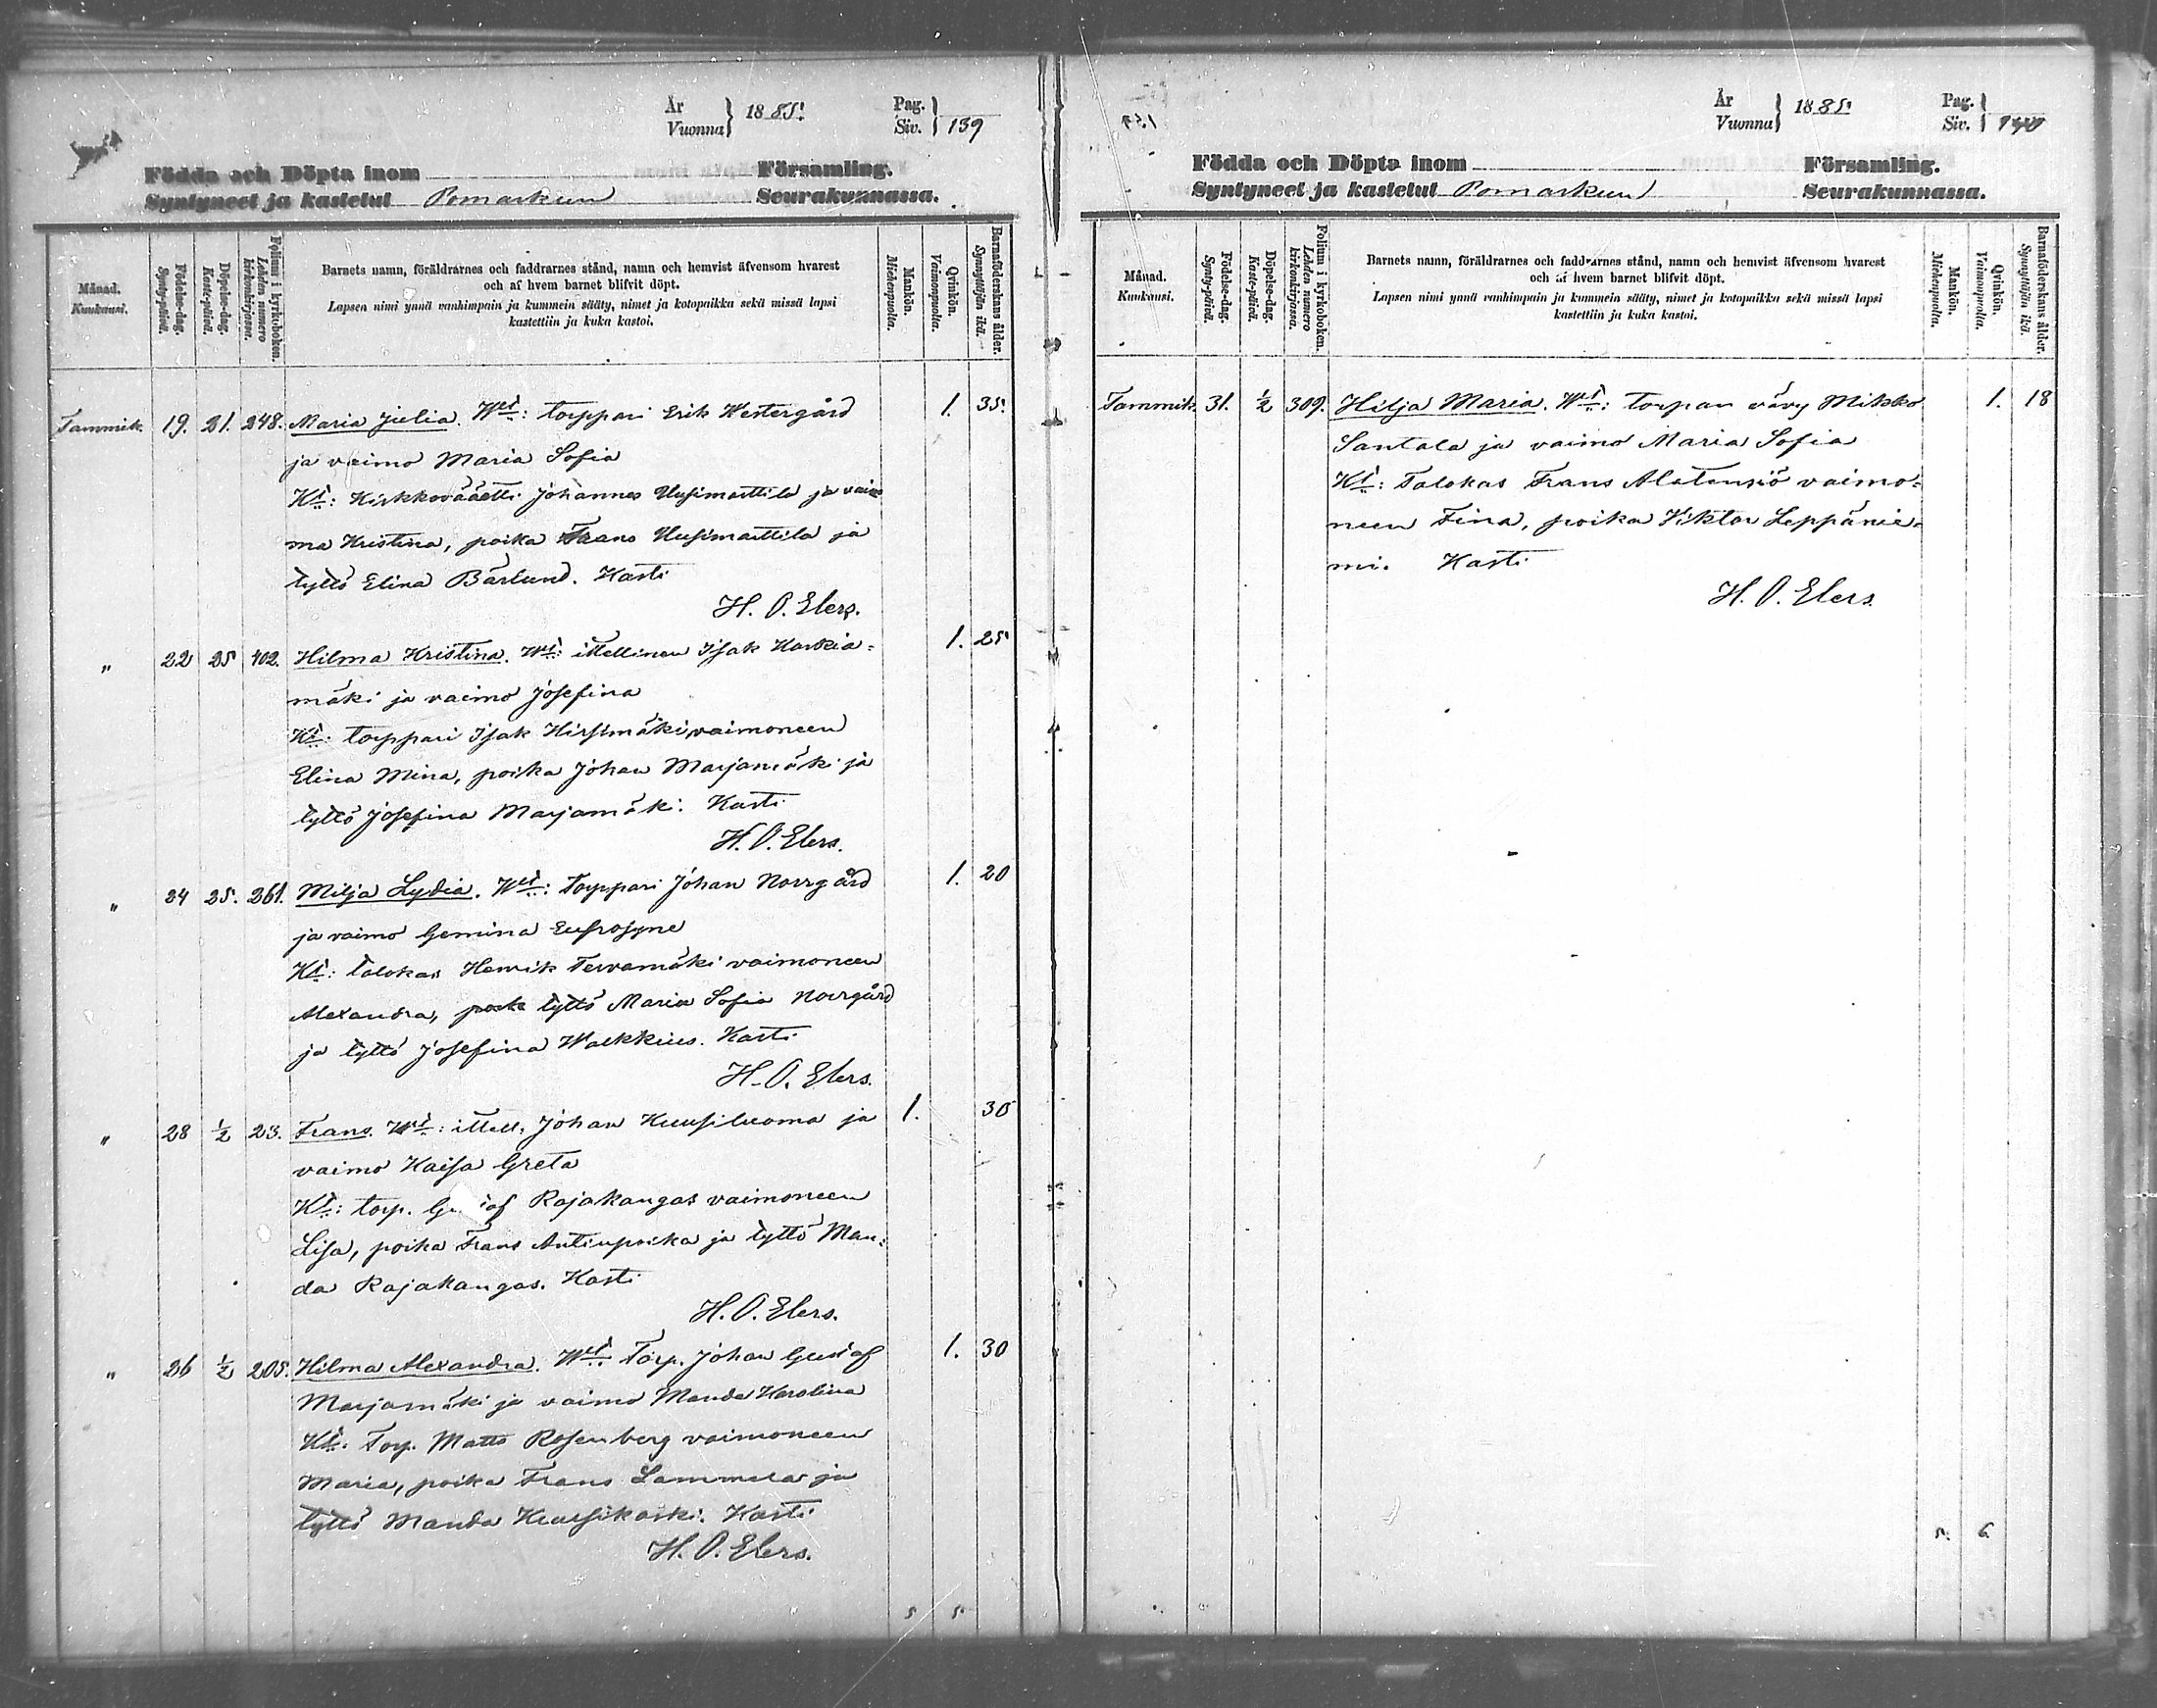 År
Vuonna } 1885.
Pag.
Siv. } 139
Födda och Döpta inom Församling.
Syntyneet ja kastetut Pomarkun Seurakunnassa.
Månad.
Kuukausi.
Födelse-dag.
Synty-päivä.
Döpelse-dag.
Kaste-päivä.
Folium i kyrkoboken.
Lehden numero kirkonkirjassa.
Barnets namn, föräldrarnes och faddrarnes stånd, namn och hemvist äfvensom hvarest
och af hvem barnet blifvit döpt.
Lapsen nimi ynnä vanhimpain ja kummein sääty, nimet ja kotopaikka sekä missä lapsi
kastettiin ja kuka kastoi.
Mankön.
Miehenpuolta.
Qvinkön.
Vaimonpuolta.
Barnaföderskans ålder.
Synnyttäjän ikä.
Tammik. 19. 21. 248. Maria Julia. Wat: torppari Erik Westergård 1. 35.
ja vaimo Maria Sofia
Kt: Kirkkoväärtti Johannes Uusimarttila ja vaimo
ma Kristina, poika Frans Uusimarttila ja
tyttö Elina Bärlund. Kasti
H. O. Elers.
" 22 25 402. Hilma Kristina. Wat: itellinen Isak Harkia- 1. 25
mäki ja vaimo Josefina
Kt: torppari Isak Hirsimäki vaimoneen
Elina Mina, poika Johan Marjamäki ja
tyttö Josefina Marjamäki. Kasti
H. O. Elers.
" 24 25. 261. Milja Lydia. Wat: Torppari Johan Norrgård 1. 20
ja vaimo Gemina Eufrosyne
Kt: talokas Henrik Tervamäki vaimoneen
Alexandra, tyttö Maria Sofia Norrgård
ja tyttö Josefina Walkkius. Kasti
H. O. Elers.
" 28 1/2 23. Frans. Wat: itell. Johan Kuusiluoma ja 1. 30
vaimo Kaisa Greta
Kt: torp. Gu af Rajakangas vaimoneen
Lisa, poika Frans Antinpoika ja tyttö Man-
da Rajakangas. Kasti
H. O. Elers.
" 26 1/2 205. Hilma Alexandra. Wat: Torp. Johan Gustaf 1. 30
Marjamäki ja vaimo Manda Karolina
Kt: Torp. Matts Rosenberg vaimoneen
Maria, poika Frans Lammela ja
tyttö Manda Kuusikoski. Kasti
H. O. Elers.
5 5.
År
Vuonna } 1885.
Pag.
Siv. } 140
Födda och Döpta inom Församling.
Syntyneet ja kastetut Pomarkun Seurakunnassa.
Månad.
Kuukausi.
Födelse-dag.
Synty-päivä.
Döpelse-dag.
Kaste-päivä.
Folium i kyrkoboken.
Lehden numero kirkonkirjassa.
Barnets namn, föräldrarnes och faddrarnes stånd, namn och hemvist äfvensom hvarest
och af hvem barnet blifvit döpt.
Lapsen nimi ynnä vanhimpain ja kummein sääty, nimet ja kotopaikka sekä missä lapsi
kastettiin ja kuka kastoi.
Mankön.
Miehenpuolta.
Qvinkön.
Vaimonpuolta.
Barnaföderskans ålder.
Synnyttäjän ikä.
Tammik. 31. 1/2 309. Hilja Maria. Wat: torpan vävy Mikko 1. 18
Santala ja vaimo Maria Sofia
Kt: Talokas Frans Alatensiö vaimo-
neen Fina, poika Viktor Leppänie-
mi. Kasti
H. O. Elers.
5. 6